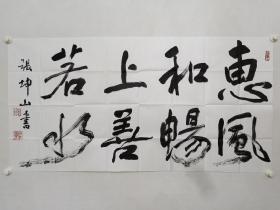 惠風
和暢
上善
若水
張坤山書